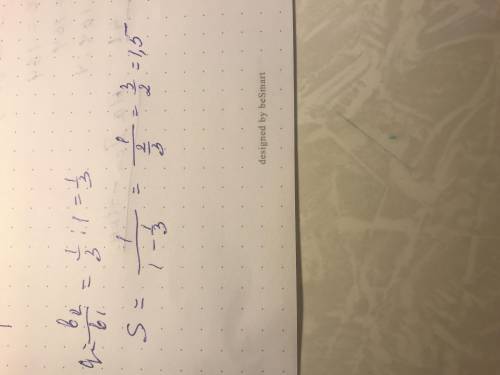 q = b₂/b₁ = 1/3 : 1 = 1/3
S = 1/(1 - 1/3) = 1/(2/3) = 3/2 = 1,5
designed by beSmart